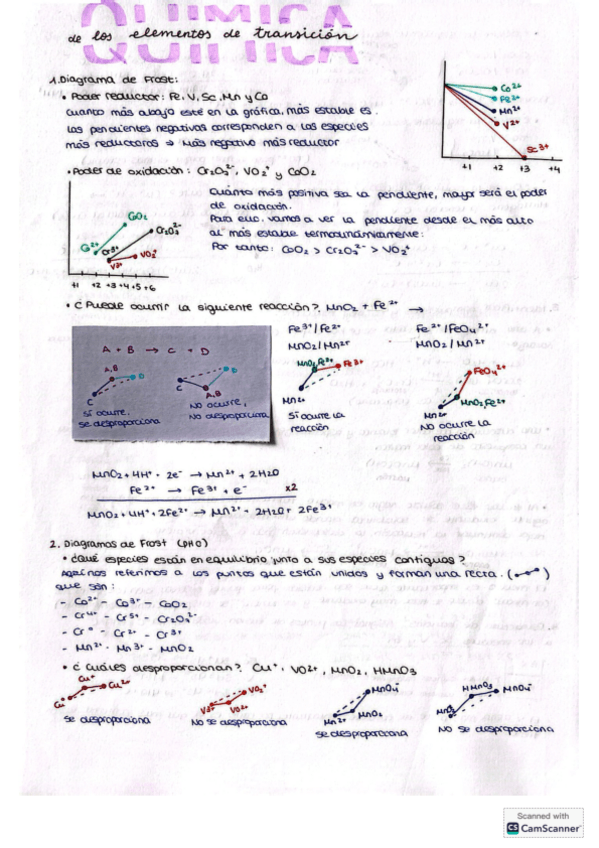 QUIMICA
de los elementos de transición
QUIMICA
1. Diagrama de Frost:
• Poder reductor: Fe, V, Sc, Mn y Co
Cuanto más abajo esté en la gráfica, más estable es.
Las pendientes negativas corresponden a las especies
más reductoras ⇒ Más negativo más reductor
Co²⁺
Fe²⁺
Mn²⁺
V²⁺
Sc³⁺
+1 +2 +3 +4
• Poder de oxidación: Cr₂O₃²⁻, VO₂⁺ y CoO₂
Cuánto más positiva sea la pendiente, mayor será el poder
de oxidación.
Para ello, vamos a ver la pendiente desde el más alto
al más estable termodinámicamente:
Por tanto: CoO₂ > Cr₂O₃²⁻ > VO₂⁺
CoO₂
Cr₂O₃²⁻
Cr³⁺
VO₂⁺
V³⁺
+1 +2 +3 +4 +5 +6
• ¿Puede ocurrir la siguiente reacción? MnO₂ + Fe²⁺ →
A + B → C + D
A,B
D
C
Sí ocurre,
se desproporciona
D
C
A,B
No ocurre,
No desproporciona
Fe³⁺/Fe²⁺
MnO₂/Mn²⁺
MnO₂,Fe²⁺
Fe³⁺
Mn²⁺
Sí ocurre la
reacción
Fe²⁺/FeO₄²⁻
MnO₂/Mn²⁺
FeO₄²⁻
MnO₂,Fe²⁺
Mn²⁺
No ocurre la
reacción
MnO₂ + 4H⁺ + 2e⁻ → Mn²⁺ + 2H₂O
Fe²⁺ → Fe³⁺ + e⁻ x2
MnO₂ + 4H⁺ + 2Fe²⁺ → Mn²⁺ + 2H₂O + 2Fe³⁺
2. Diagramas de Frost (pH 0)
• ¿Qué especies están en equilibrio junto a sus especies contiguas?
Aquí nos referimos a los puntos que están unidos y forman una recta.
que son:
- Co²⁺ - Co³⁺ - CoO₂
- Cr⁴⁺ - Cr⁵⁺ - Cr₂O₃²⁻
- Cr⁰ - Cr²⁺ - Cr³⁺
- Mn²⁺ - Mn³⁺ - MnO₂
• ¿Cuáles desproporcionan? Cu⁺, VO²⁺, MnO₂, HMnO₃
Cu⁺
Cu²⁺
Cu
Se desproporciona
VO₂⁺
V³⁺
VO²⁺
No se desproporciona
MnO₄⁻
Mn²⁺
MnO₂
Se desproporciona
HMnO₃
MnO₄⁻
MnO₂
No se desproporciona
Scanned with
CS CamScanner